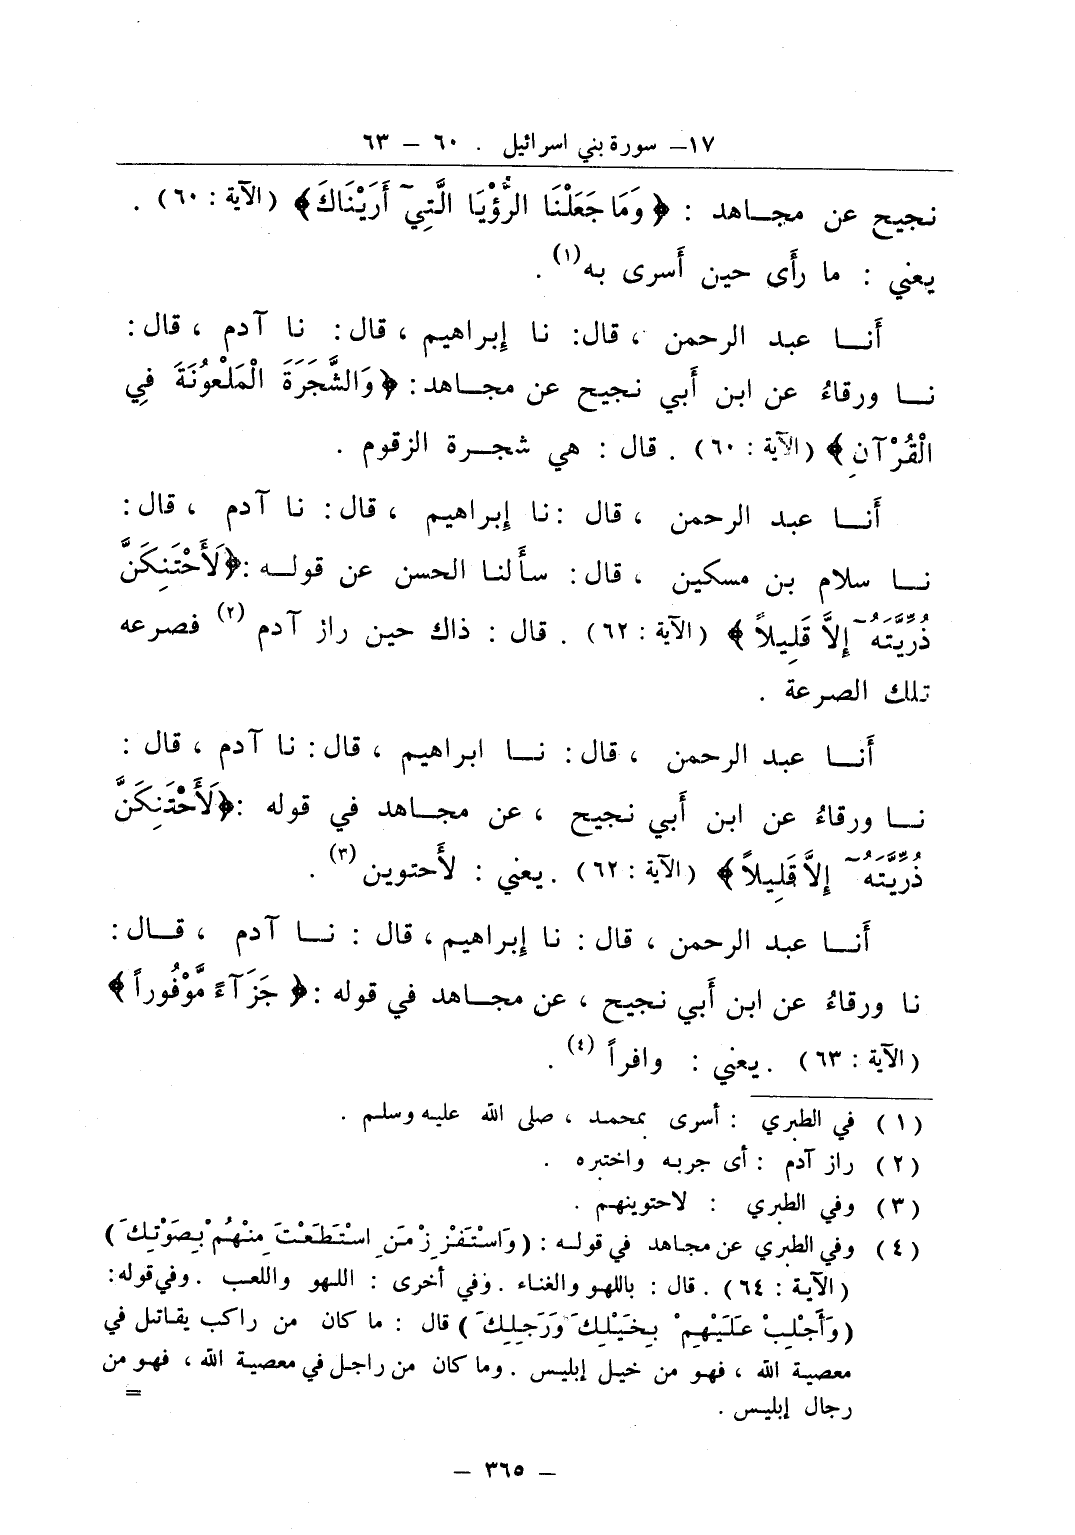 ١٧ــ سورة بني اسرائيل . ٦٠ ــ ٦٣
نجيح عن مجـــاهد : ﴿ وَمَا جَعَلْنَا الرُّؤْيَا الَّتِيٓ أَرَيْنَاكَ﴾ (الآية : ٦٠) .
يعني : ما رأَى حين أَسرى به(١) .
أَنـــا عبد الرحمن ، قال: نا إِبراهيم ، قال: نا آدم ، قال:
نـــا ورقاءُ عن ابن أَبي نجيح عن مجـــاهد: ﴿ وَالشَّجَرَةَ الْمَلْعُونَةَ فِي
الْقُرْآنِ﴾ (الآية : ٦٠) . قال : هي شجـــرة الزقوم .
أَنـــا عبد الرحمن ، قال :نا إِبراهيم ، قال: نا آدم ، قال:
نـــا سلام بن مسكين ، قال: سأَلنا الحسن عن قولـــه :﴿لَأَحْتَنِكَنَّ
ذُرِّيَّتَهُٓ إِلاَّ قَلِيلاً ﴾ (الآية : ٦٢) . قال : ذاك حين راز آدم (٢) فصرعه
تلك الصرعة .
أَنـــا عبد الرحمن ، قال: نـــا ابراهيم ، قال: نا آدم ، قال :
نـــا ورقاءُ عن ابن أَبي نجيح ، عن مجـــاهد في قوله :﴿لَأَحْتَنِكَنَّ
ذُرِّيَّتَهُٓ إِلاَّ قَلِيلاً﴾ (الآية : ٦٢) . يعني : لأَحتوين (٣) .
أَنـــا عبد الرحمن ، قال : نا إِبراهيم ، قال : نـــا آدم ، قـــال:
نا ورقاءُ عن ابن أَبي نجيح ، عن مجـــاهد في قوله :﴿ جَزَآءً مَّوْفُوراً ﴾
(الآية : ٦٣) . يعني : وافراً (٤) .
(١) في الطبري : أسرى بمحمد ، صلى الله عليه وسلم .
(٢) راز آدم : أى جربه واختبره .
(٣) وفي الطبري : لاحتوينهم .
(٤) وفي الطبري عن مجاهد في قوله : (وَاسْتَفْزِزْ مَنِ اسْتَطَعْتَ مِنْهُمْ بِصَوْتِكَ)
(الآية : ٦٤) . قال : باللهو والغناء . وفي أخرى : اللهو واللعب . وفي قوله:
(وَأَجْلِبْ عَلَيْهِمْ بِخَيْلِكَ وَرَجِلِكَ) قال : ما كان من راكب يقاتل في
معصية الله ، فهو من خيل إبليس . وما كان من راجل في معصية الله ، فهو من
رجال إبليس .
=
ــ ٣٦٥ ــ